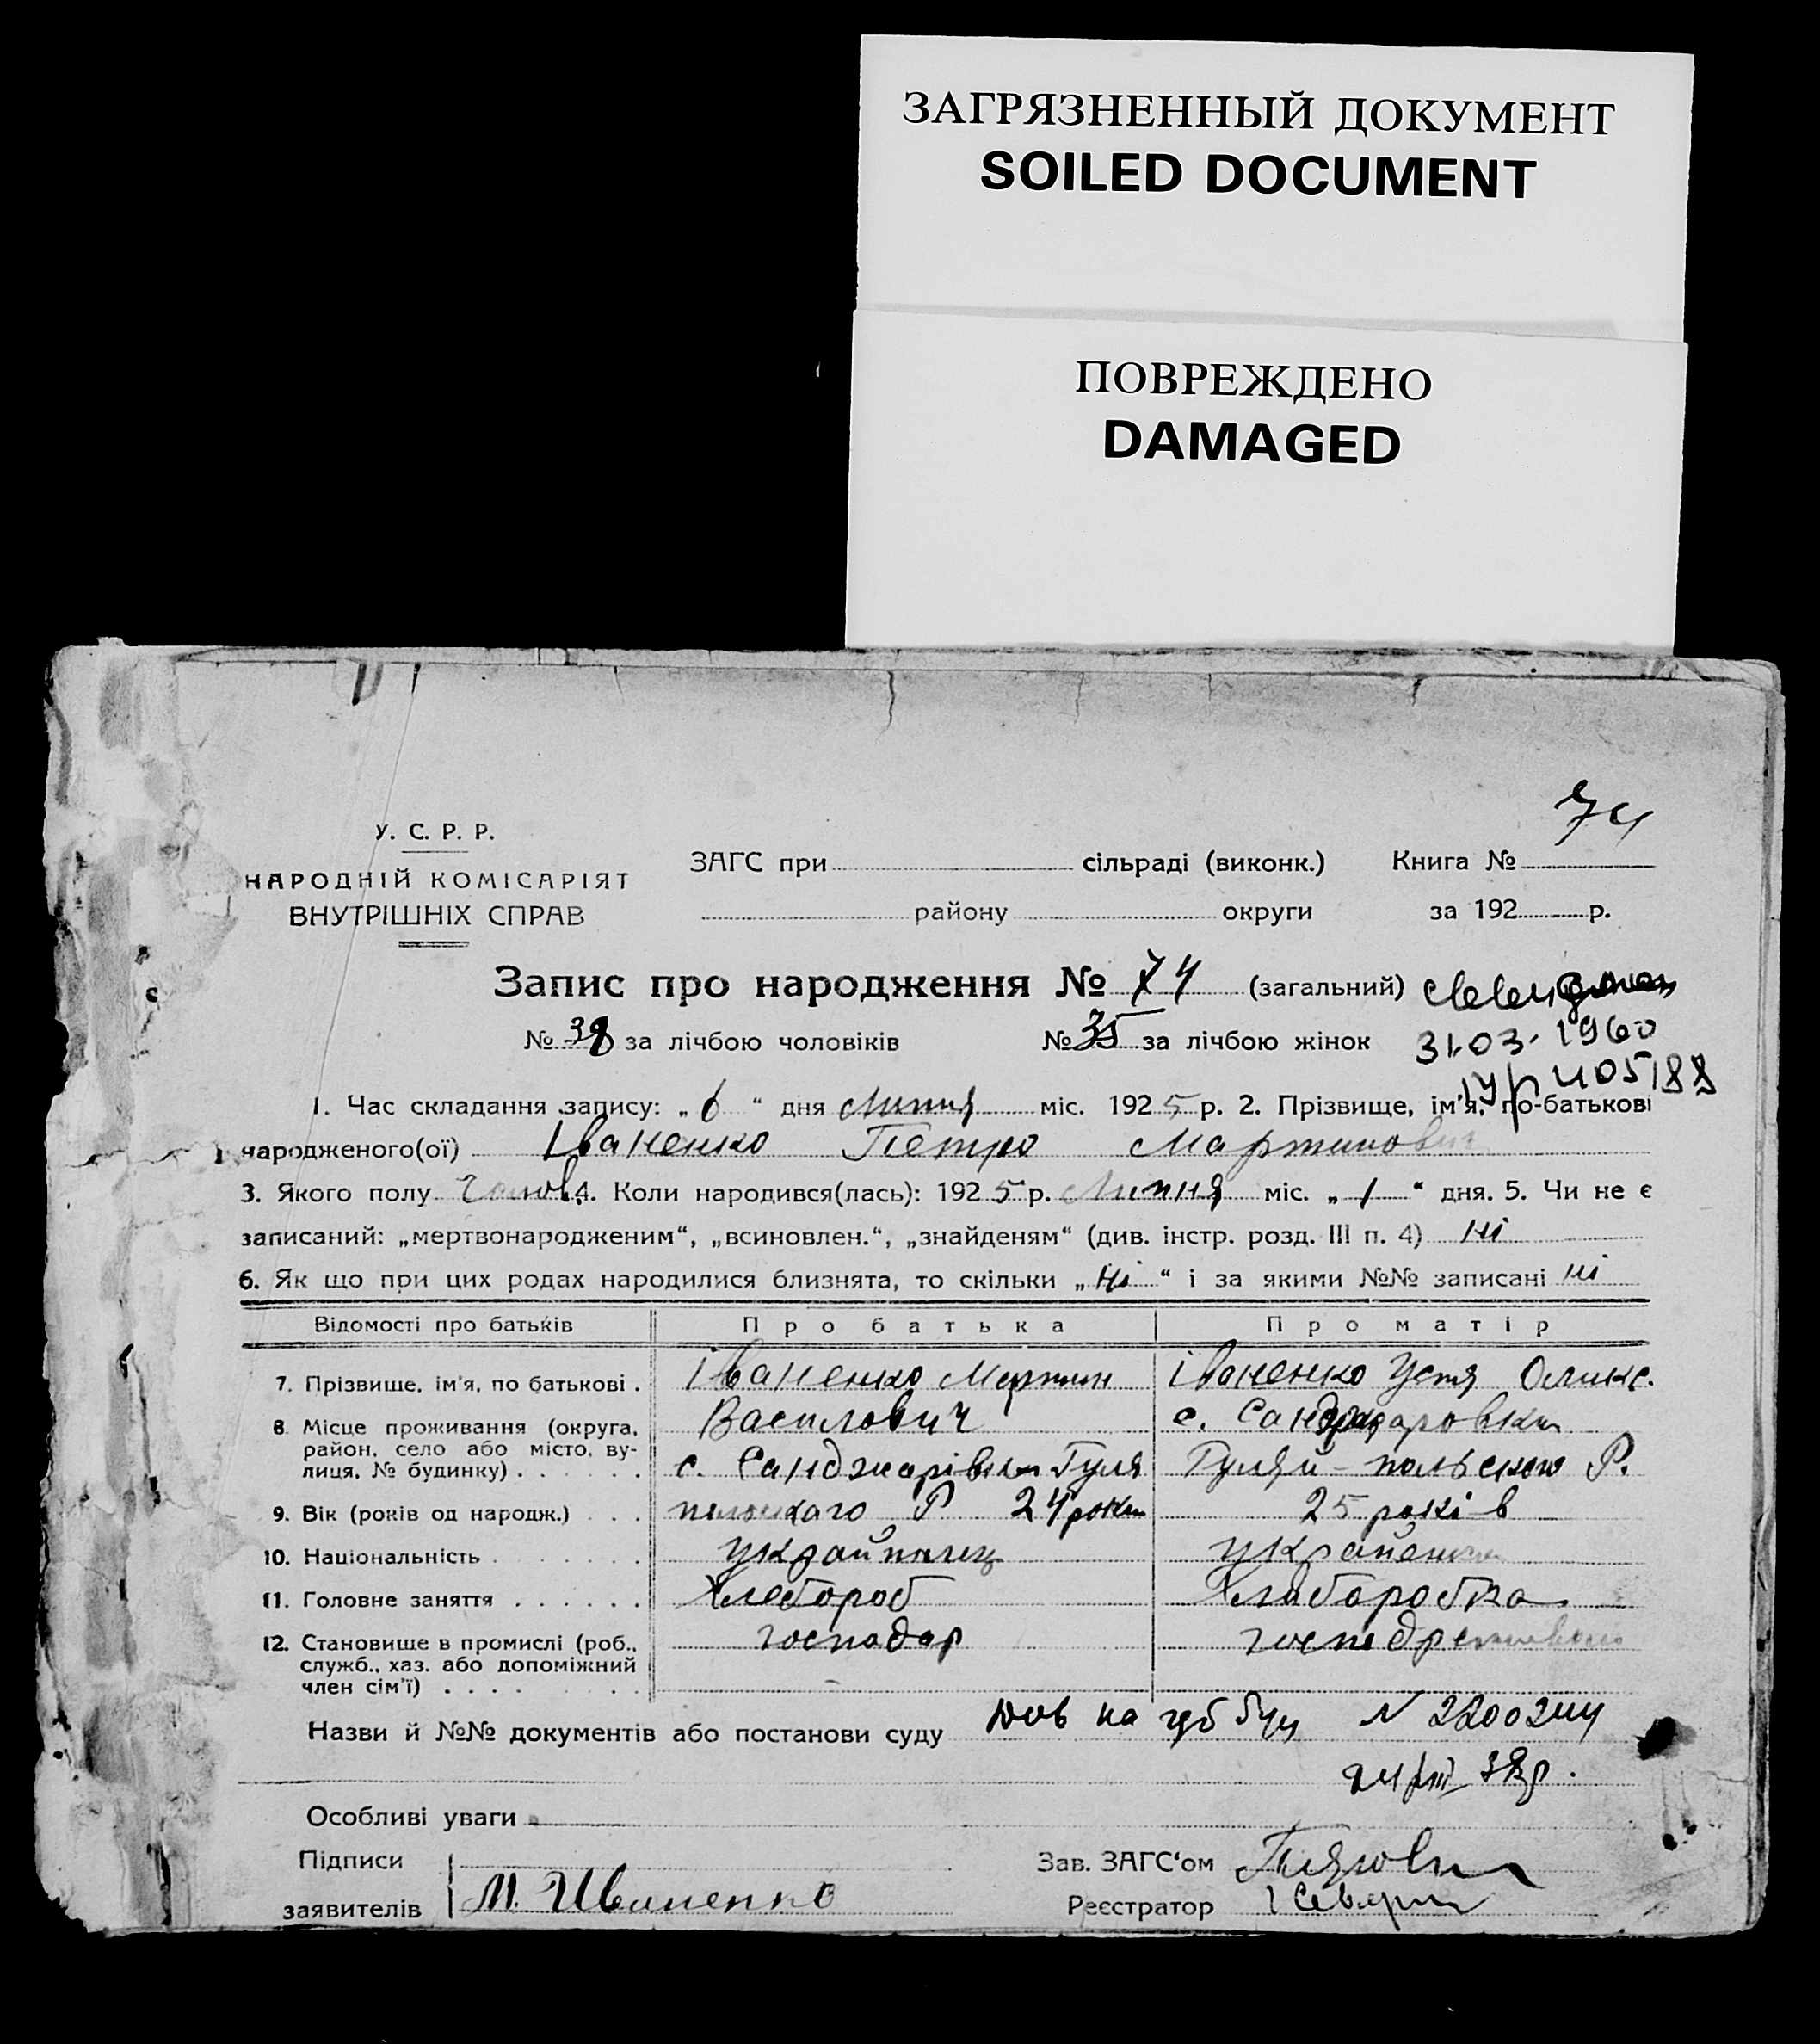 ЗАГРЯЗНЕННЫЙ ДОКУМЕНТ
SOILED DOCUMENT
ПОВРЕЖДЕНО
DAMAGED
74
У. С. Р. Р.
НАРОДНІЙ КОМІСАРІЯТ
ВНУТРІШНІХ СПРАВ
ЗАГС при сільраді (виконк.) Книга №
району округи за 192 р.
Запис про народження № 74 (загальний)
№ 38 за лічбою чоловіків № 35 за лічбою жінок
31.03.1960
1. Час складання запису: „ 6 “ дня Липня міс. 192 5 р. 2. Прізвище, ім'я, по-батькові
народженого(ої) Іваненко Петро Мартинович
3. Якого полу Чолов. 4. Коли народився(лась): 192 5 р. Липня міс. „ 1 “ дня. 5. Чи не є
записаний: „мертвонародженим“, „всиновлен.“, „знайденям“ (див. інстр. розд. III п. 4) ні
6. Як що при цих родах народилися близнята, то скільки „ Ні “ і за якими №№ записані ні
Відомості про батьків Про батька Про матір
7. Прізвище, ім'я, по батькові . Іваненко Мартин Іваненко Устя Оликс.
Василович с.
8. Місце проживання (округа,
район, село або місто, ву-
лиця, № будинку) . . . . . . с. Санджарівка Гуля Гуляй-польского Р.
9. Вік (років од народж.) . . . Р 24 роки 25 років
10. Національність . . . . . . .
11. Головне заняття . . . . . . Хлебороб Хлаборобка
12. Становище в промислі (роб., господар
служб., хаз. або допоміжний
член сім'ї) . . . . . . .
Назви й №№ документів або постанови суду на N 2200244
38 р.
Особливі уваги
Підписи
заявителів М. Иваненко
Зав. ЗАГС'ом
Реєстратор